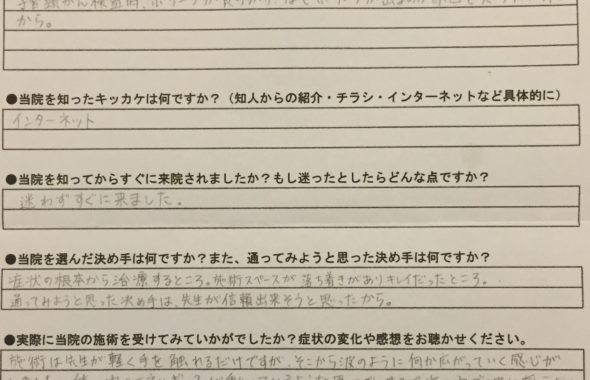 から。
●当院を知ったキッカケは何ですか？（知人からの紹介・チラシ・インターネットなど具体的に）
インターネット
●当院を知ってからすぐに来院されましたか？もし迷ったとしたらどんな点ですか？
迷わずすぐに来ました。
●当院を選んだ決め手は何ですか？また、通ってみようと思った決め手は何ですか？
症状の根本から治療するところ。施術スペースが落ち着きがありキレイだったところ。
通ってみようと思った決め手は、先生が信頼出来そうと思ったから。
●実際に当院の施術を受けてみていかがでしたか？症状の変化や感想をお聴かせください。
施術は先生が軽く手を触れるだけですが、そこから波のように何か広がっていく感じが